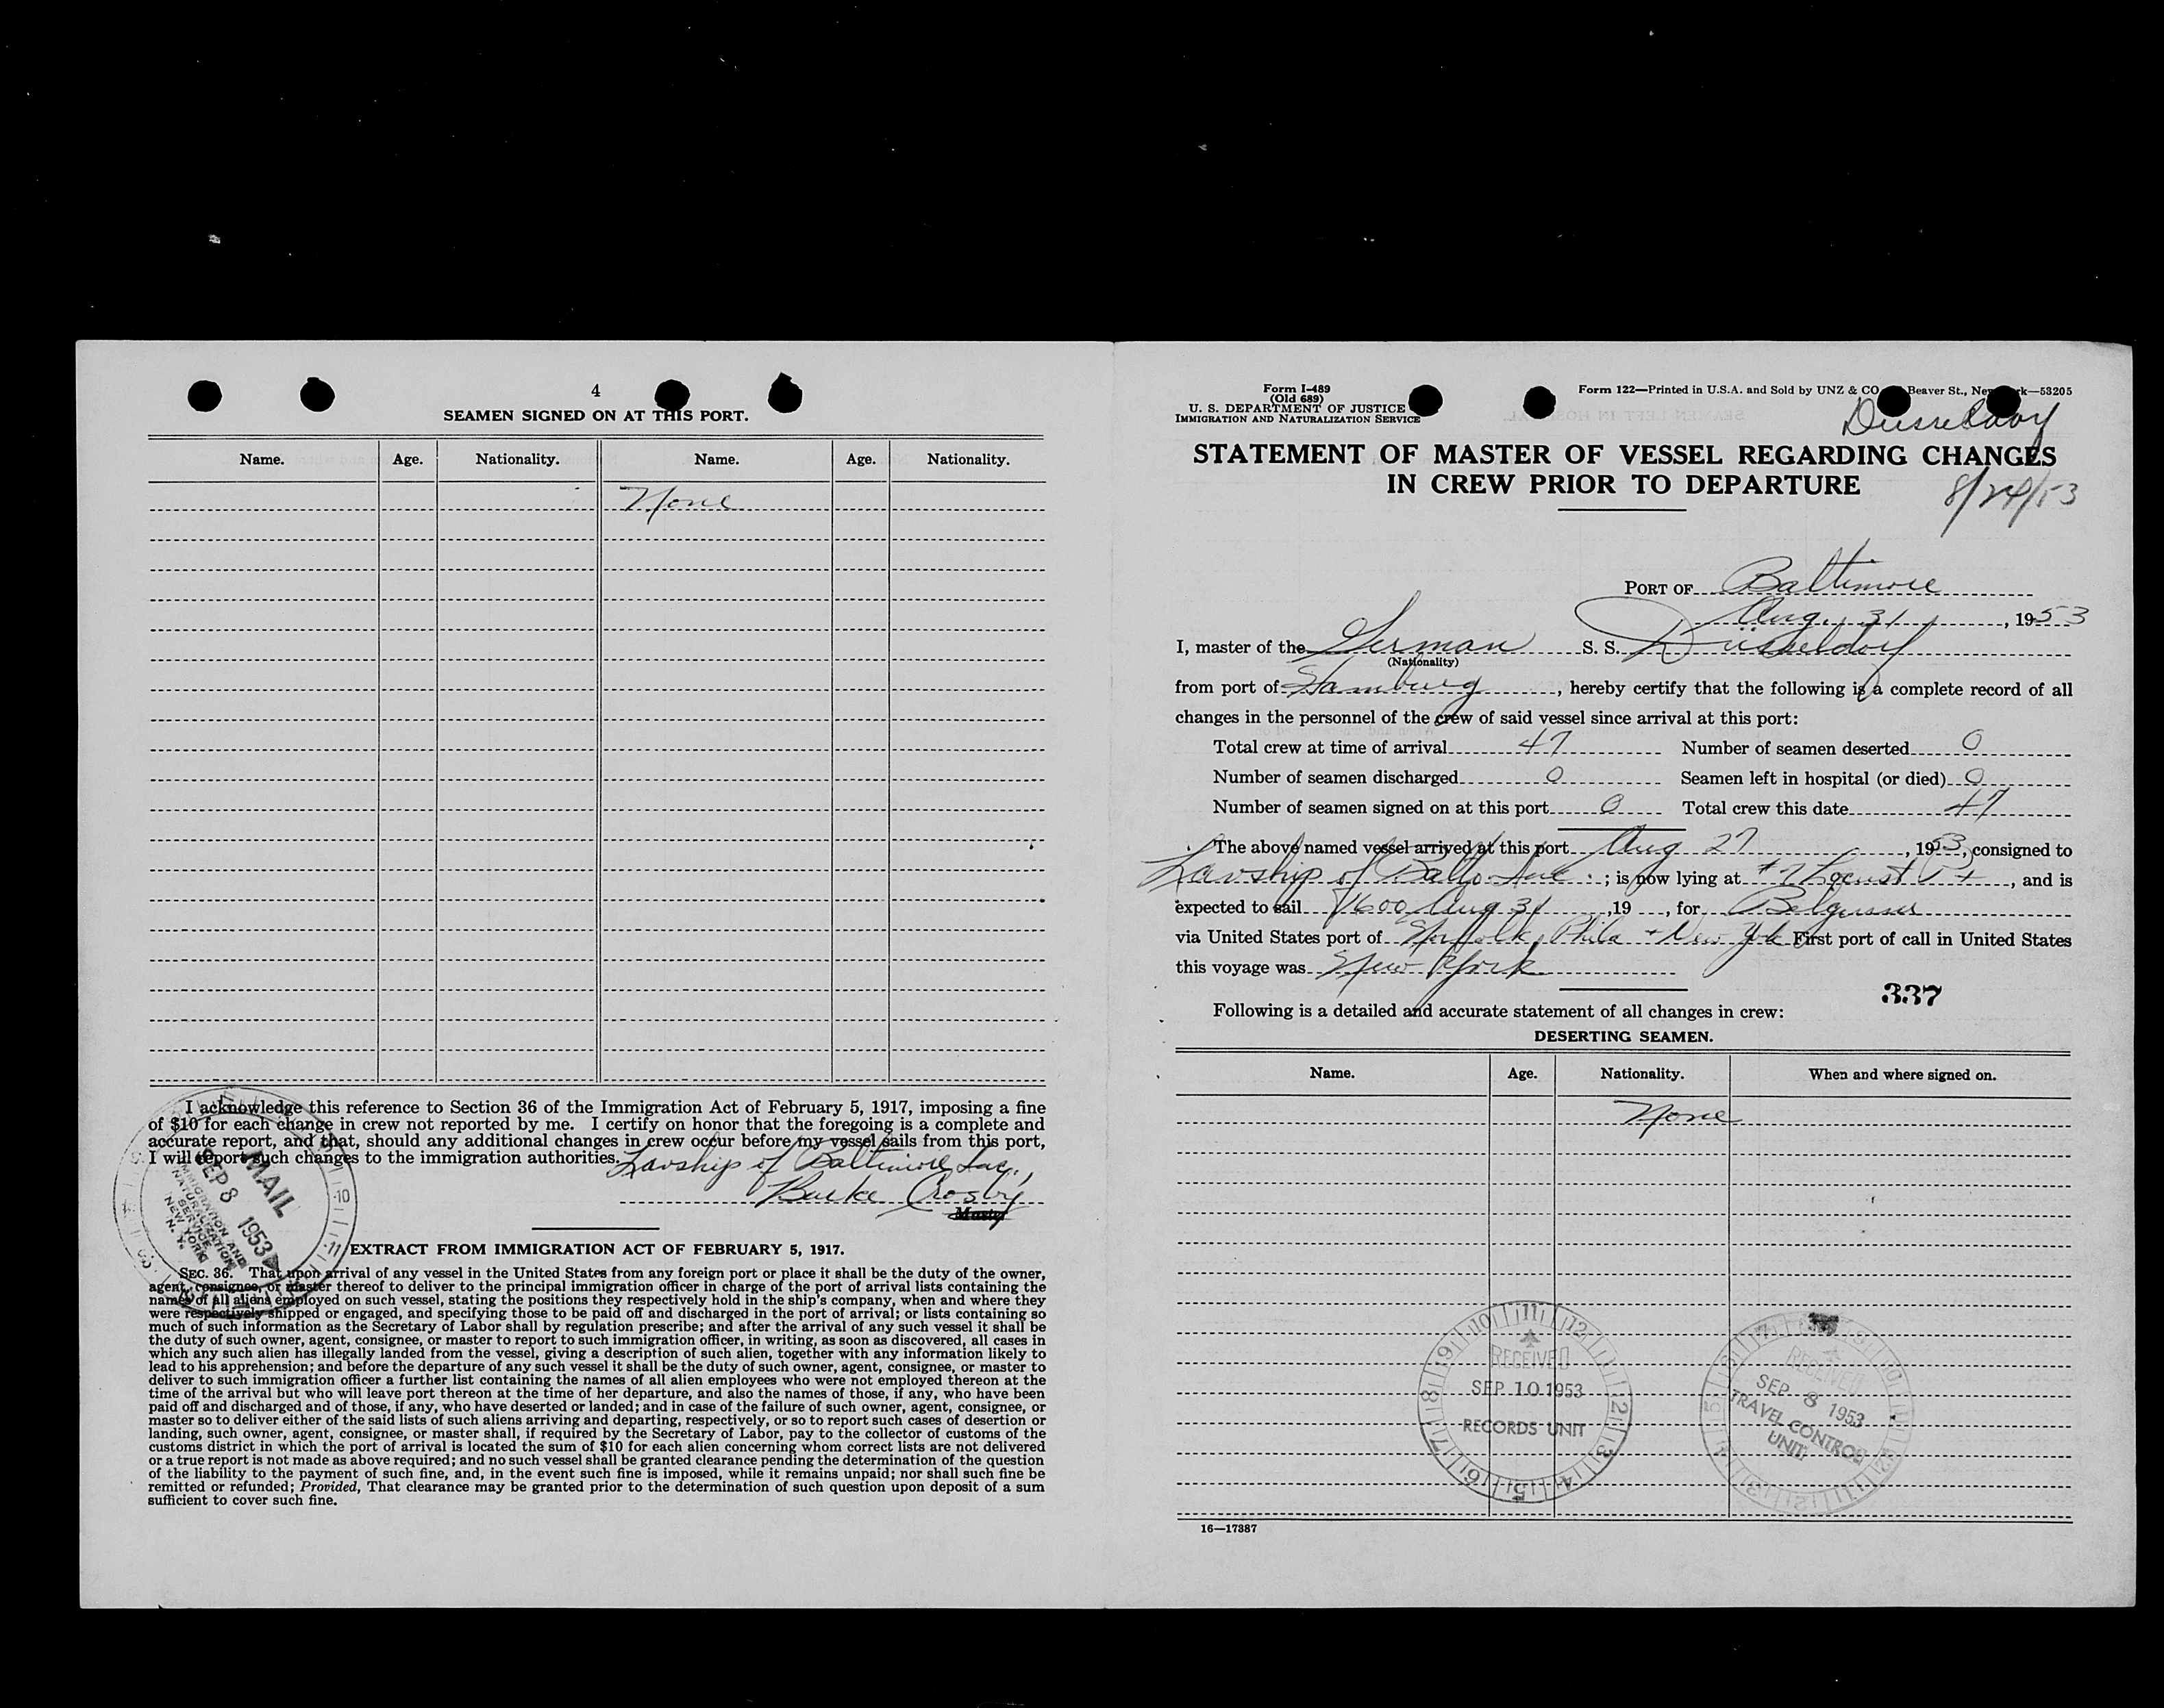 4
SEAMEN SIGNED ON AT THIS PORT.
Name. Age. Nationality. Name. Age. Nationality.
None
I acknowledge this reference to Section 36 of the Immigration Act of February 5, 1917, imposing a fine
of $10 for each change in crew not reported by me. I certify on honor that the foregoing is a complete and
accurate report, and that, should any additional changes in crew occur before my vessel sails from this port,
I will report such changes to the immigration authorities.
Lavship of Baltimore Inc.,
Burke Crosby
Master
MAIL
SEP 8 1953
IMMIGRATION AND
NATURALIZATION
SERVICE
NEW YORK
N. Y.
EXTRACT FROM IMMIGRATION ACT OF FEBRUARY 5, 1917.
SEC. 36. That upon arrival of any vessel in the United States from any foreign port or place it shall be the duty of the owner,
agent, consignee, or master thereof to deliver to the principal immigration officer in charge of the port of arrival lists containing the
names of all aliens employed on such vessel, stating the positions they respectively hold in the ship's company, when and where they
were respectively shipped or engaged, and specifying those to be paid off and discharged in the port of arrival; or lists containing so
much of such information as the Secretary of Labor shall by regulation prescribe; and after the arrival of any such vessel it shall be
the duty of such owner, agent, consignee, or master to report to such immigration officer, in writing, as soon as discovered, all cases in
which any such alien has illegally landed from the vessel, giving a description of such alien, together with any information likely to
lead to his apprehension; and before the departure of any such vessel it shall be the duty of such owner, agent, consignee, or master to
deliver to such immigration officer a further list containing the names of all alien employees who were not employed thereon at the
time of the arrival but who will leave port thereon at the time of her departure, and also the names of those, if any, who have been
paid off and discharged and of those, if any, who have deserted or landed; and in case of the failure of such owner, agent, consignee, or
master so to deliver either of the said lists of such aliens arriving and departing, respectively, or so to report such cases of desertion or
landing, such owner, agent, consignee, or master shall, if required by the Secretary of Labor, pay to the collector of customs of the
customs district in which the port of arrival is located the sum of $10 for each alien concerning whom correct lists are not delivered
or a true report is not made as above required; and no such vessel shall be granted clearance pending the determination of the question
of the liability to the payment of such fine, and, in the event such fine is imposed, while it remains unpaid; nor shall such fine be
remitted or refunded; Provided, That clearance may be granted prior to the determination of such question upon deposit of a sum
sufficient to cover such fine.
Form I-489
(Old 689)
U. S. DEPARTMENT OF JUSTICE
IMMIGRATION AND NATURALIZATION SERVICE
Form 122—Printed in U.S.A. and Sold by UNZ & CO. Beaver St., New York—53205
Dusseldorf
STATEMENT OF MASTER OF VESSEL REGARDING CHANGES
IN CREW PRIOR TO DEPARTURE
8/24/53
PORT OF Baltimore
Aug. 31, 1953
I, master of the German S. S. Düsseldorf
(Nationality)
from port of Hamburg, hereby certify that the following is a complete record of all
changes in the personnel of the crew of said vessel since arrival at this port:
Total crew at time of arrival 47 Number of seamen deserted 0
Number of seamen discharged 0 Seamen left in hospital (or died) 0
Number of seamen signed on at this port 0 Total crew this date 47
The above named vessel arrived at this port Aug 27, 1953, consigned to
Lavship of Balto Inc.; is now lying at #7 Locust Pt, and is
expected to sail 1600 Aug 31, 19, for
via United States port of Norfolk, Phila + New York First port of call in United States
this voyage was New York
337
Following is a detailed and accurate statement of all changes in crew:
DESERTING SEAMEN.
Name. Age. Nationality. When and where signed on.
None
RECEIVED
SEP 10 1953
RECORDS UNIT
RECEIVED
SEP 8 1953
TRAVEL CONTROL
UNIT
16—17387